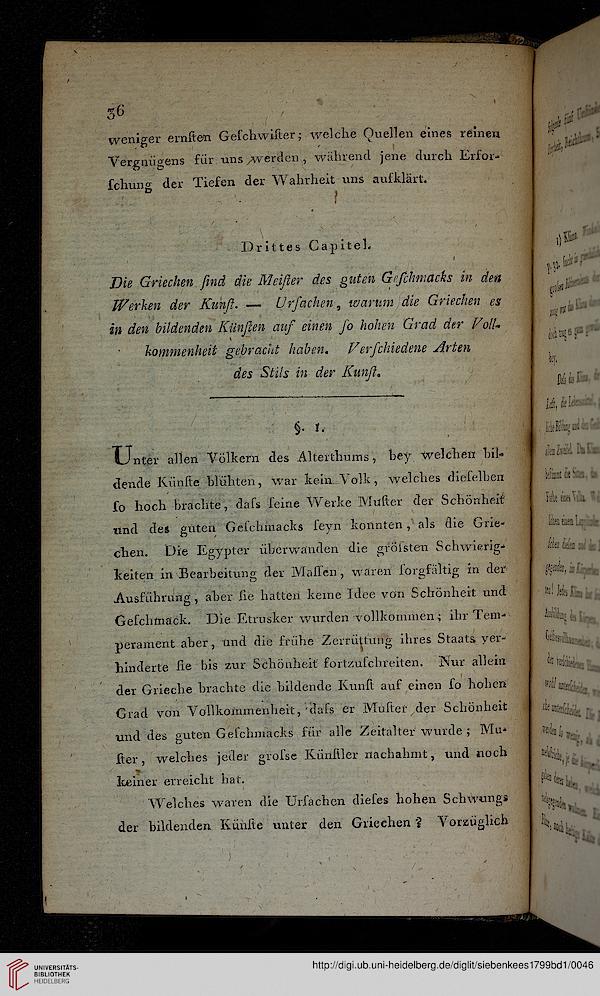 36
weniger ernſten Geſchwiſter; welche Quellen eines reinen
Vergnügens für uns werden, während jene durch Erfor-
ſchung der Tiefen der Wahrheit uns aufklärt.
Drittes Capitel.
Die Griechen ſind die Meiſter des guten Geſchmacks in den
Werken der Kunſt. — Urſachen, warum die Griechen es
in den bildenden Künſten auf einen ſo hohen Grad der Voll-
kommenheit gebracht haben. Verſchiedene Arten
des Stils in der Kunſt.
§. 1.
Unter allen Völkern des Alterthums, bey welchen bil-
dende Künſte blühten, war kein Volk, welches dieſelben
ſo hoch brachte, daſs ſeine Werke Muſter der Schönheit
und des guten Geſchmacks ſeyn konnten, als die Grie-
chen. Die Egypter überwanden die gröſsten Schwierig-
keiten in Bearbeitung der Maſſen, waren ſorgfältig in der
Ausführung, aber ſie hatten keine Idee von Schönheit und
Geſchmack. Die Etrusker wurden vollkommen; ihr Tem-
perament aber, und die frühe Zerrüttung ihres Staats ver-
hinderte ſie bis zur Schönheit fortzuſchreiten. Nur allein
der Grieche brachte die bildende Kunſt auf einen ſo hohen
Grad von Vollkommenheit, daſs er Muſter der Schönheit
und des guten Geſchmacks für alle Zeitalter wurde; Mu-
ſter, welches jeder groſse Künſtler nachahmt, und noch
keiner erreicht hat.
Welches waren die Urſachen dieſes hohen Schwungs
der bildenden Künſte unter den Griechen? Vorzüglich
UNIVERSITÄTS-
BIBLIOTHEK
HEIDELBERG
http://digi.ub.uni-heidelberg.de/diglit/siebenkees1799bd1/0046